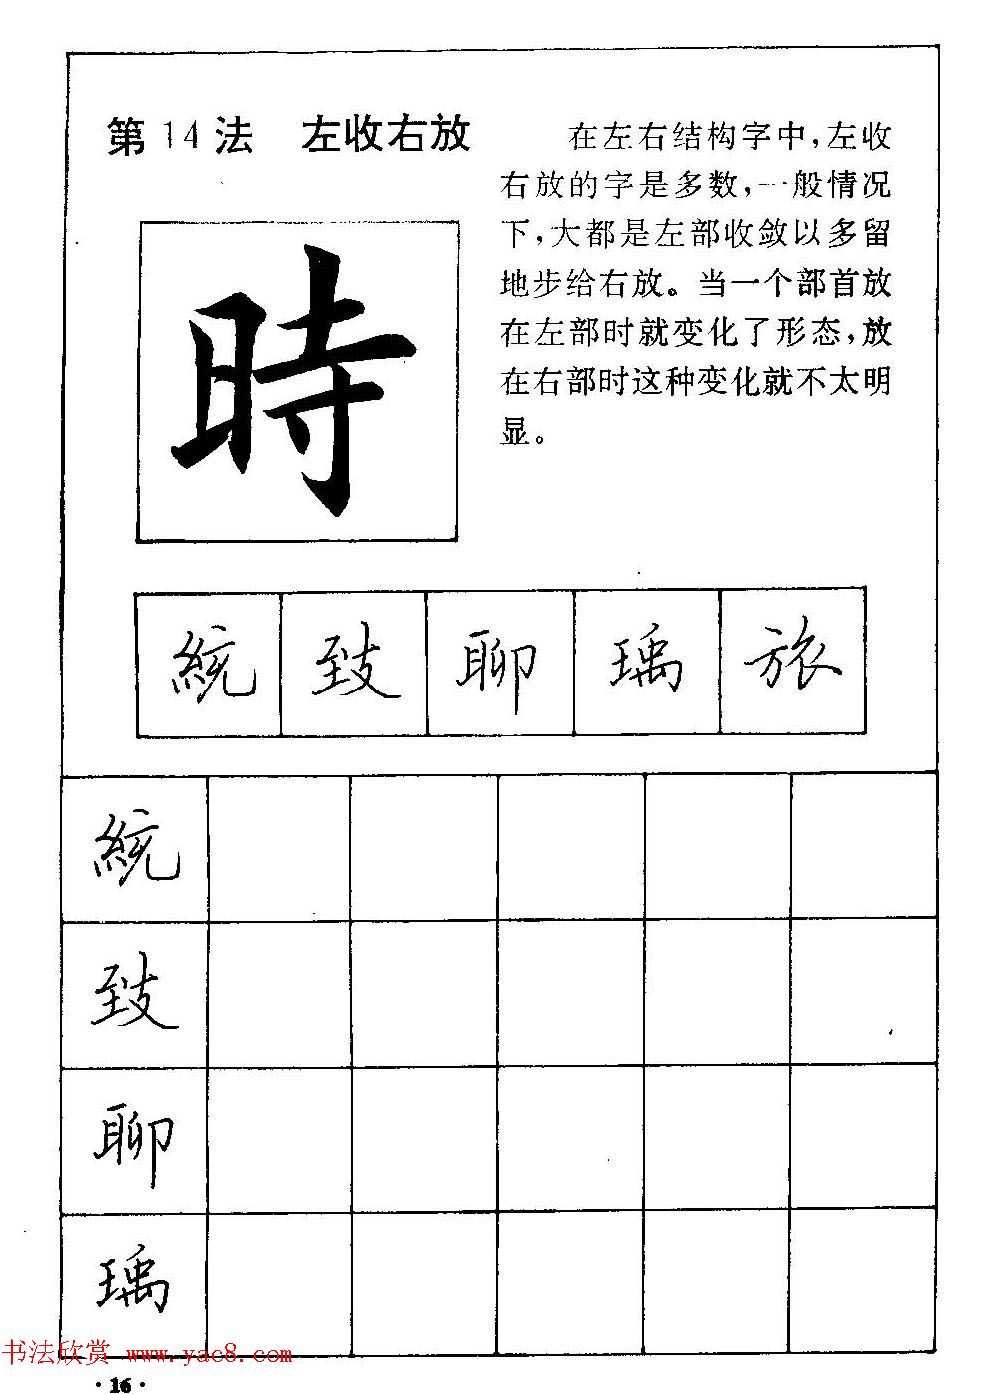 第14法 左收右放
在左右结构字中，左收
右放的字是多数，一般情况
下，大都是左部收敛以多留
地步给右放。当一个部首放
在左部时就变化了形态，放
在右部时这种变化就不太明
显。
時
統 致 聊 瑀 旅
統
致
聊
瑀
书法欣赏 www.yac8.com
·16·